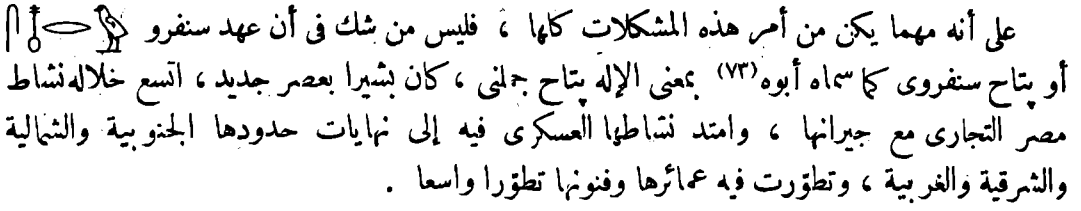 على أنه مهما يكن من أمر هذه المشكلات كلها ، فليس من شك فى أن عهد سنفرو
أو بتاح سنفروى كما سماه أبوه (٧٣) بمعنى الإله بتاح جملنى ، كان بشيرا بعصر جديد ، اتسع خلاله نشاط
مصر التجارى مع جيرانها ، وامتد نشاطها العسكرى فيه إلى نهايات حدودها الجنوبية والشمالية
والشرقية والغربية ، وتطوّرت فيه عمائرها وفنونها تطوّرا واسعا .